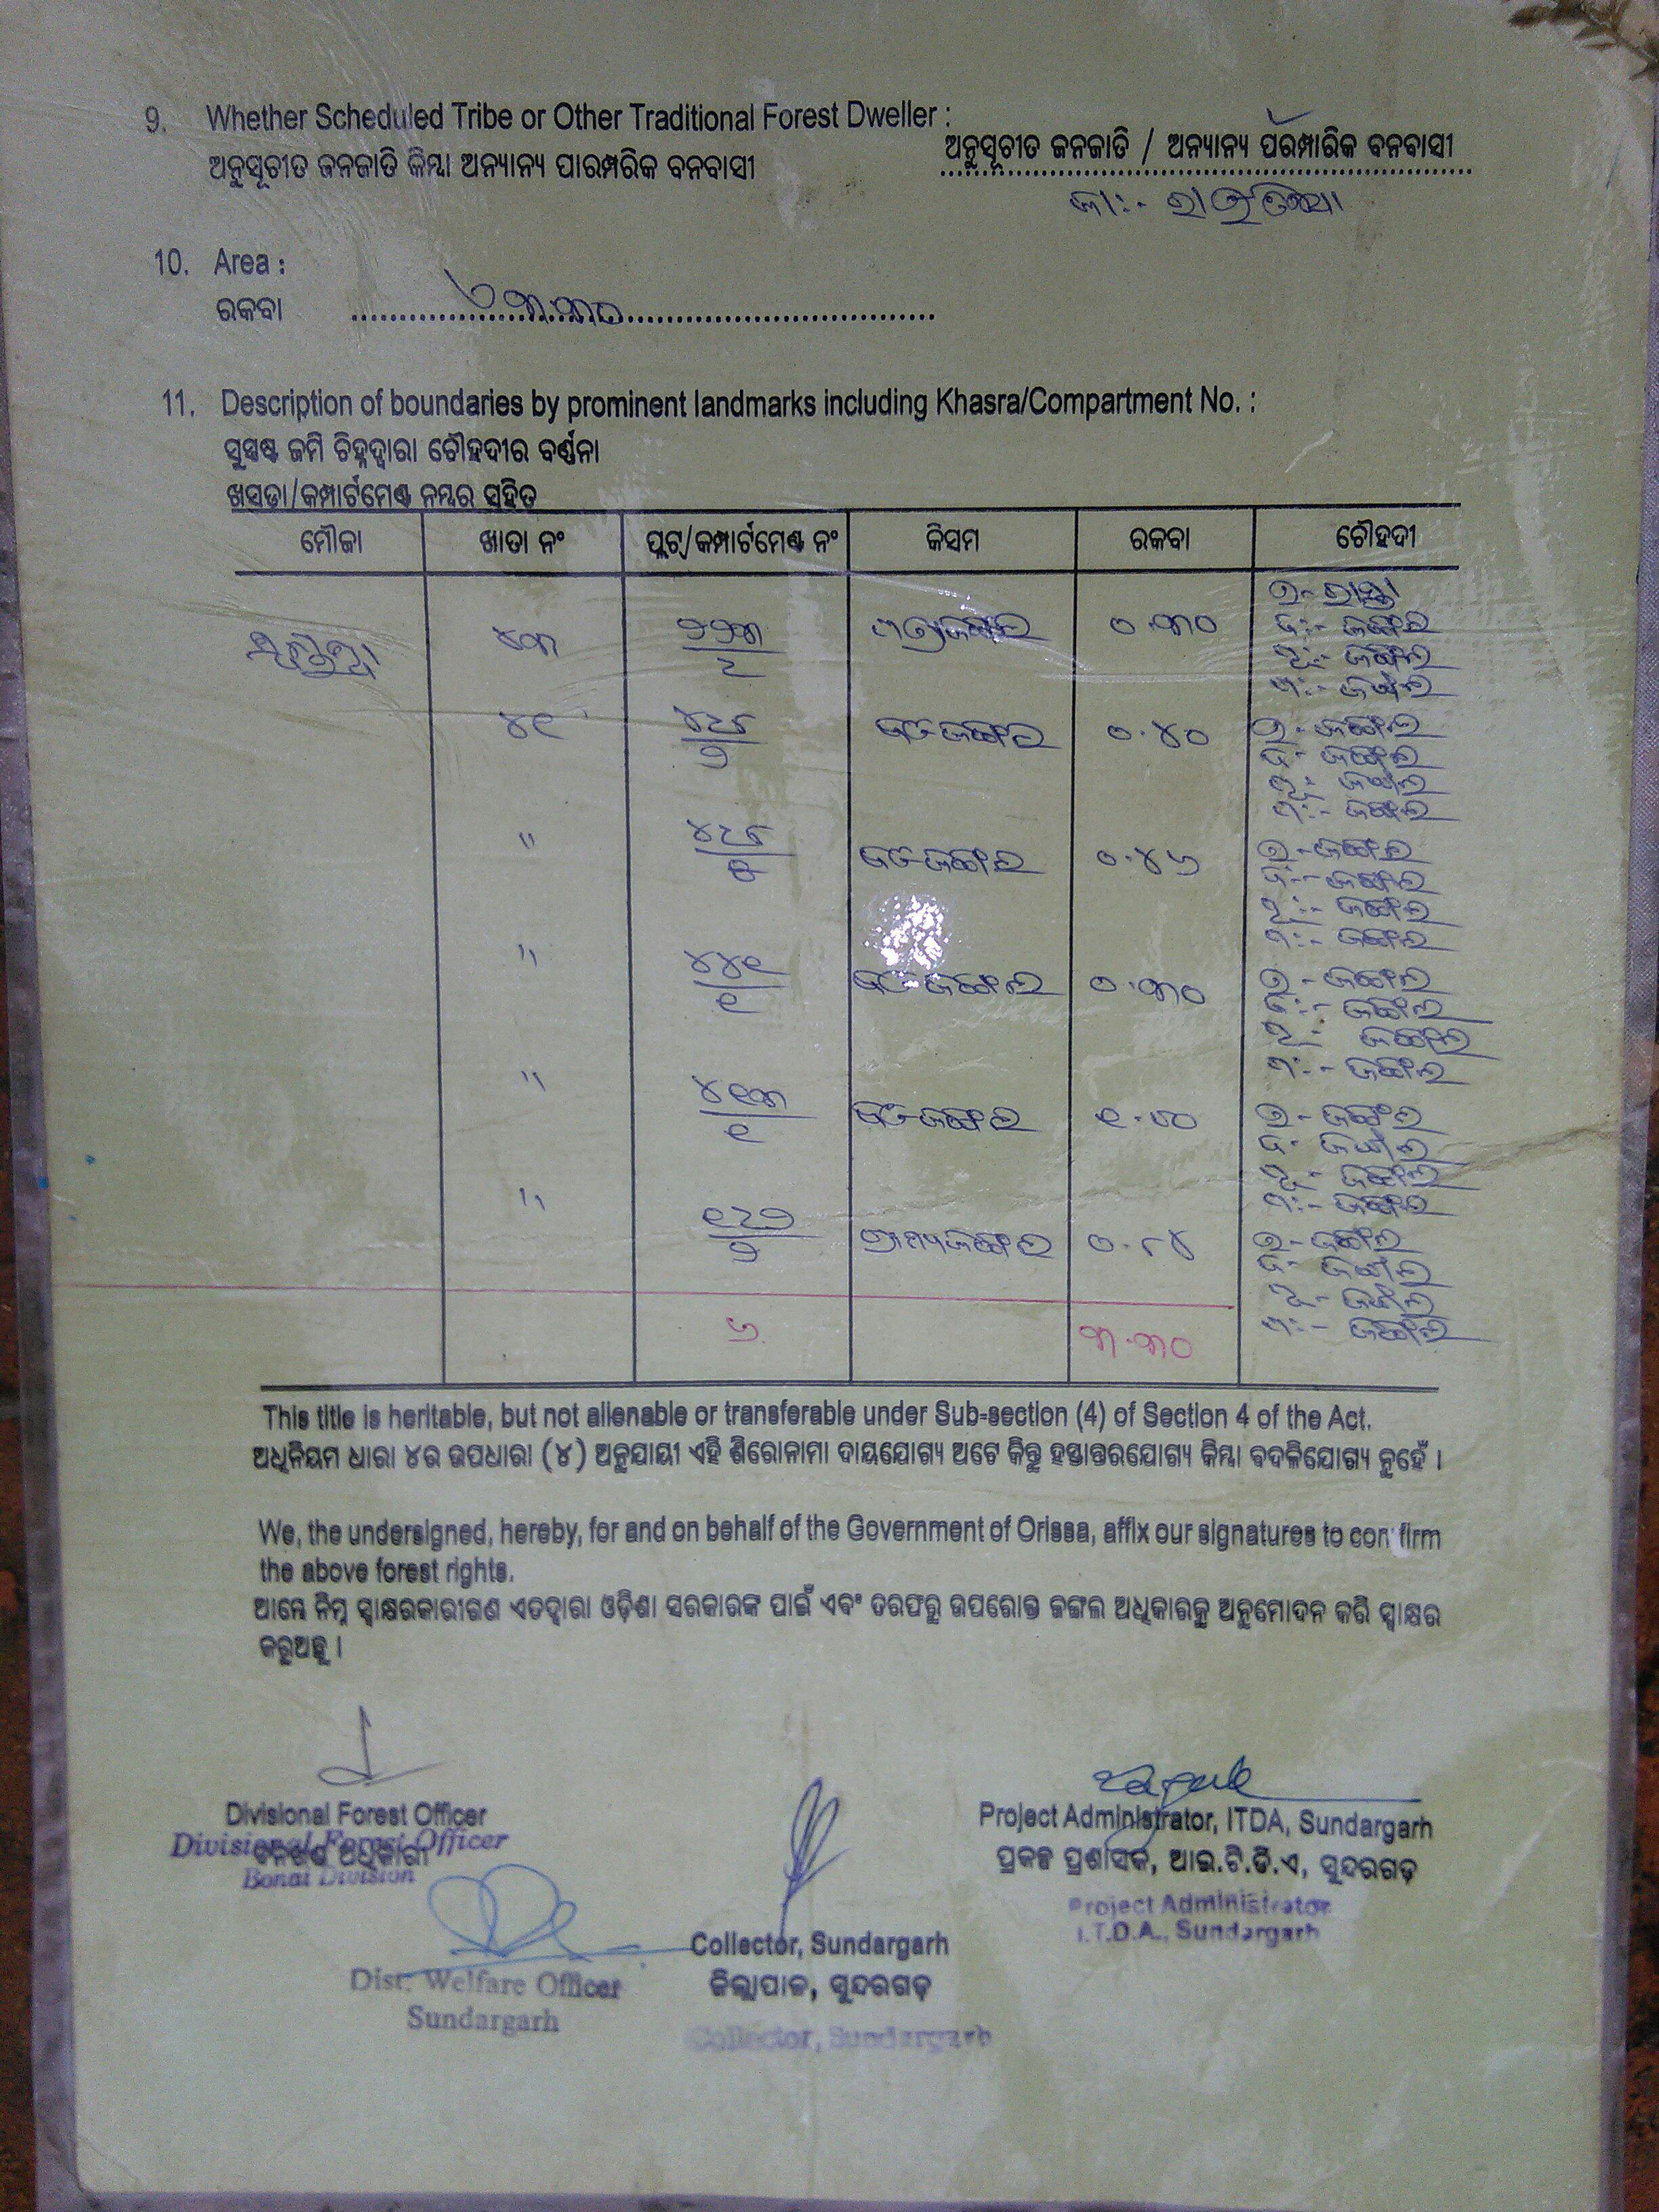 9. Whether Scheduled Tribe or Other Traditional Forest Dweller :
ଅନୁସୂଚୀତ ଜନଜାତି / ଅନ୍ୟାନ୍ୟ ପରମ୍ପାରିକ ବନବାସୀ
ଅନୁସୂଚୀତ ଜନଜାତି କିମ୍ବା ଅନ୍ୟାନ୍ୟ ପାରମ୍ପରିକ ବନବାସୀ
10. Area :
ରକବା
11. Description of boundaries by prominent landmarks including Khasra/Compartment No. :
ସୁସ୍ପଷ୍ଟ ଜମି ଚିହ୍ନଦ୍ୱାରା ଚୌହଦୀର ବର୍ଣ୍ଣନା
ଖସଡ଼ା/କମ୍ପାର୍ଟମେଣ୍ଟ ନମ୍ବର ସହିତ
ମୌଜା ଖାତା ନଂ ପ୍ଲଟ୍/କମ୍ପାର୍ଟମେଣ୍ଟ ନଂ କିସମ ରକବା ଚୌହଦୀ
୦.୩୦
ଦଃ- ଜଙ୍ଗଲ
ପୂଃ- ଜଙ୍ଗଲ
ପଃ- ଜଙ୍ଗଲ
୪୧ ୦.୪୦ ଉ- ଜଙ୍ଗଲ
ଦ- ଜଙ୍ଗଲ
ପୂ- ଜଙ୍ଗଲ
ପଃ- ଜଙ୍ଗଲ
" ୦.୪୬ ଉ- ଜଙ୍ଗଲ
ଦଃ- ଜଙ୍ଗଲ
ପୂଃ- ଜଙ୍ଗଲ
ପଃ- ଜଙ୍ଗଲ
" ୪୪୧/୧ ୦.୩୦ ଉ- ଜଙ୍ଗଲ
ଦଃ- ଜଙ୍ଗଲ
ପୂ- ଜଙ୍ଗଲ
ପଃ- ଜଙ୍ଗଲ
" ୪୧୩/୧ ଉ- ଜଙ୍ଗଲ
ଦ- ଜଙ୍ଗଲ
ପୂ- ଜଙ୍ଗଲ
ପଃ- ଜଙ୍ଗଲ
" ଗ୍ରାମ୍ୟଜଙ୍ଗଲ ଉ- ଜଙ୍ଗଲ
ଦ- ଜଙ୍ଗଲ
ପୂ- ଜଙ୍ଗଲ
ପଃ- ଜଙ୍ଗଲ
୬ ୩.୩୦
This title is heritable, but not alienable or transferable under Sub-section (4) of Section 4 of the Act.
ଅଧିନିୟମ ଧାରା ୪ର ଉପଧାରା (୪) ଅନୁଯାୟୀ ଏହି ଶିରୋନାମା ଦାୟଯୋଗ୍ୟ ଅଟେ କିନ୍ତୁ ହସ୍ତାନ୍ତରଯୋଗ୍ୟ କିମ୍ବା ବଦଳିଯୋଗ୍ୟ ନୁହେଁ ।
We, the undersigned, hereby, for and on behalf of the Government of Orissa, affix our signatures to confirm
the above forest rights.
ଆମ୍ଭେ ନିମ୍ନ ସ୍ୱାକ୍ଷରକାରୀଗଣ ଏତଦ୍ୱାରା ଓଡ଼ିଶା ସରକାରଙ୍କ ପାଇଁ ଏବଂ ତରଫରୁ ଉପରୋକ୍ତ ଜଙ୍ଗଲ ଅଧିକାରକୁ ଅନୁମୋଦନ କରି ସ୍ୱାକ୍ଷର
କରୁଅଛୁ ।
Divisional Forest Officer
Divisional Forest Officer
Bonai Division
Project Administrator, ITDA, Sundargarh
ପ୍ରକଳ୍ପ ପ୍ରଶାସକ, ଆଇ.ଟି.ଡି.ଏ, ସୁନ୍ଦରଗଡ଼
Project Administrator
I.T.D.A., Sundargarh
Dist. Welfare Officer
Sundargarh
Collector, Sundargarh
ଜିଲ୍ଲାପାଳ, ସୁନ୍ଦରଗଡ଼
Collector, Sundargarh